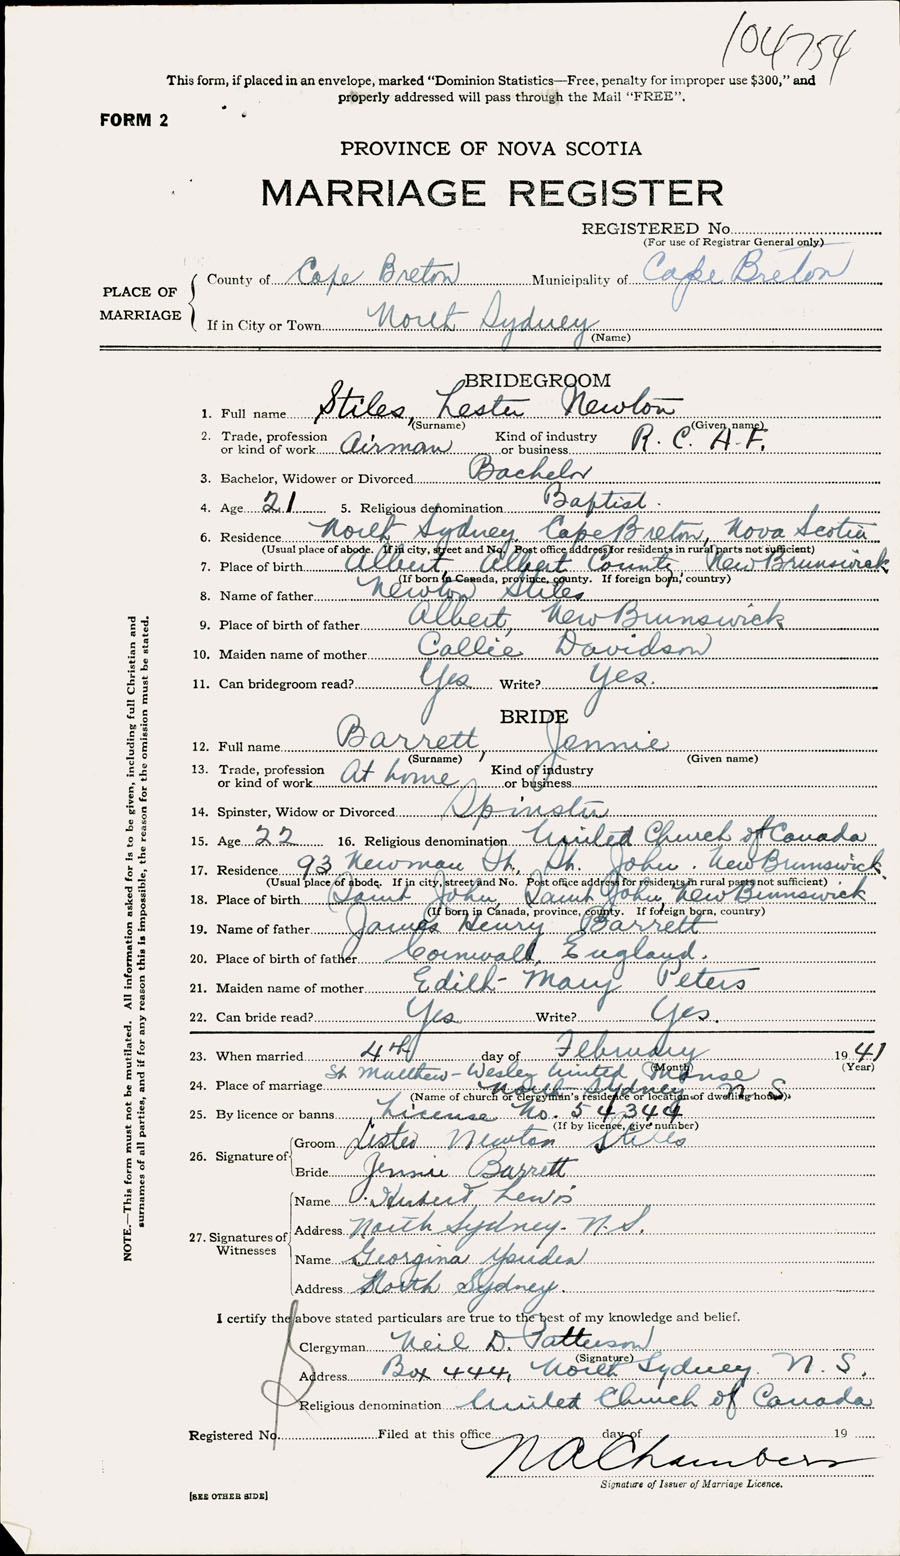 104754
This form, if placed in an envelope, marked “Dominion Statistics—Free, penalty for improper use $300,” and
properly addressed will pass through the Mail “FREE”.
FORM 2
PROVINCE OF NOVA SCOTIA
MARRIAGE REGISTER
REGISTERED No.
(For use of Registrar General only)
PLACE OF MARRIAGE
County of Cape Breton Municipality of Cape Breton
If in City or Town North Sydney
(Name)
BRIDEGROOM
1. Full name Stiles, Lester Newton
(Surname) (Given name)
2. Trade, profession or kind of work Airman Kind of industry or business R. C. A. F.
3. Bachelor, Widower or Divorced Bachelor
4. Age 21 5. Religious denomination Baptist.
6. Residence North Sydney Cape Breton, Nova Scotia
(Usual place of abode. If in city, street and No. Post office address for residents in rural parts not sufficient)
7. Place of birth Albert, Albert County, New Brunswick
(If born in Canada, province, county. If foreign born, country)
8. Name of father Newton Stiles
9. Place of birth of father Albert, New Brunswick
10. Maiden name of mother Callie Davidson
11. Can bridegroom read? Yes Write? Yes.
BRIDE
12. Full name Barrett, Jennie
(Surname) (Given name)
13. Trade, profession or kind of work At home Kind of industry or business
14. Spinster, Widow or Divorced Spinster
15. Age 22 16. Religious denomination United Church of Canada
17. Residence 93 Newman St., St. John. New Brunswick
(Usual place of abode. If in city, street and No. Post office address for residents in rural parts not sufficient)
18. Place of birth Saint John, Saint John, New Brunswick
(If born in Canada, province, county. If foreign born, country)
19. Name of father James Henry Barrett
20. Place of birth of father Cornwall, England.
21. Maiden name of mother Edith Mary Peters
22. Can bride read? Yes Write? Yes.
23. When married 4th day of February 1941
(Month) (Year)
St Matthew-Wesley United Manse
24. Place of marriage North Sydney N. S.
(Name of church or clergyman's residence or location of dwelling house)
25. By licence or banns License No. 54344
(If by licence, give number)
26. Signature of
Groom Lester Newton Stiles
Bride Jennie Barrett
27. Signatures of Witnesses
Name Hubert Lewis
Address North Sydney. N. S.
Name Georgina
Address North Sydney.
I certify the above stated particulars are true to the best of my knowledge and belief.
Clergyman Neil D. Patterson
(Signature)
Address Box 444, North Sydney N. S.
Religious denomination United Church of Canada
Registered No. Filed at this office day of 19
N A Chambers
Signature of Issuer of Marriage Licence.
[SEE OTHER SIDE]
NOTE.—This form must not be mutilated. All information asked for is to be given, including full Christian and
surnames of all parties, and if for any reason this is impossible, the reason for the omission must be stated.